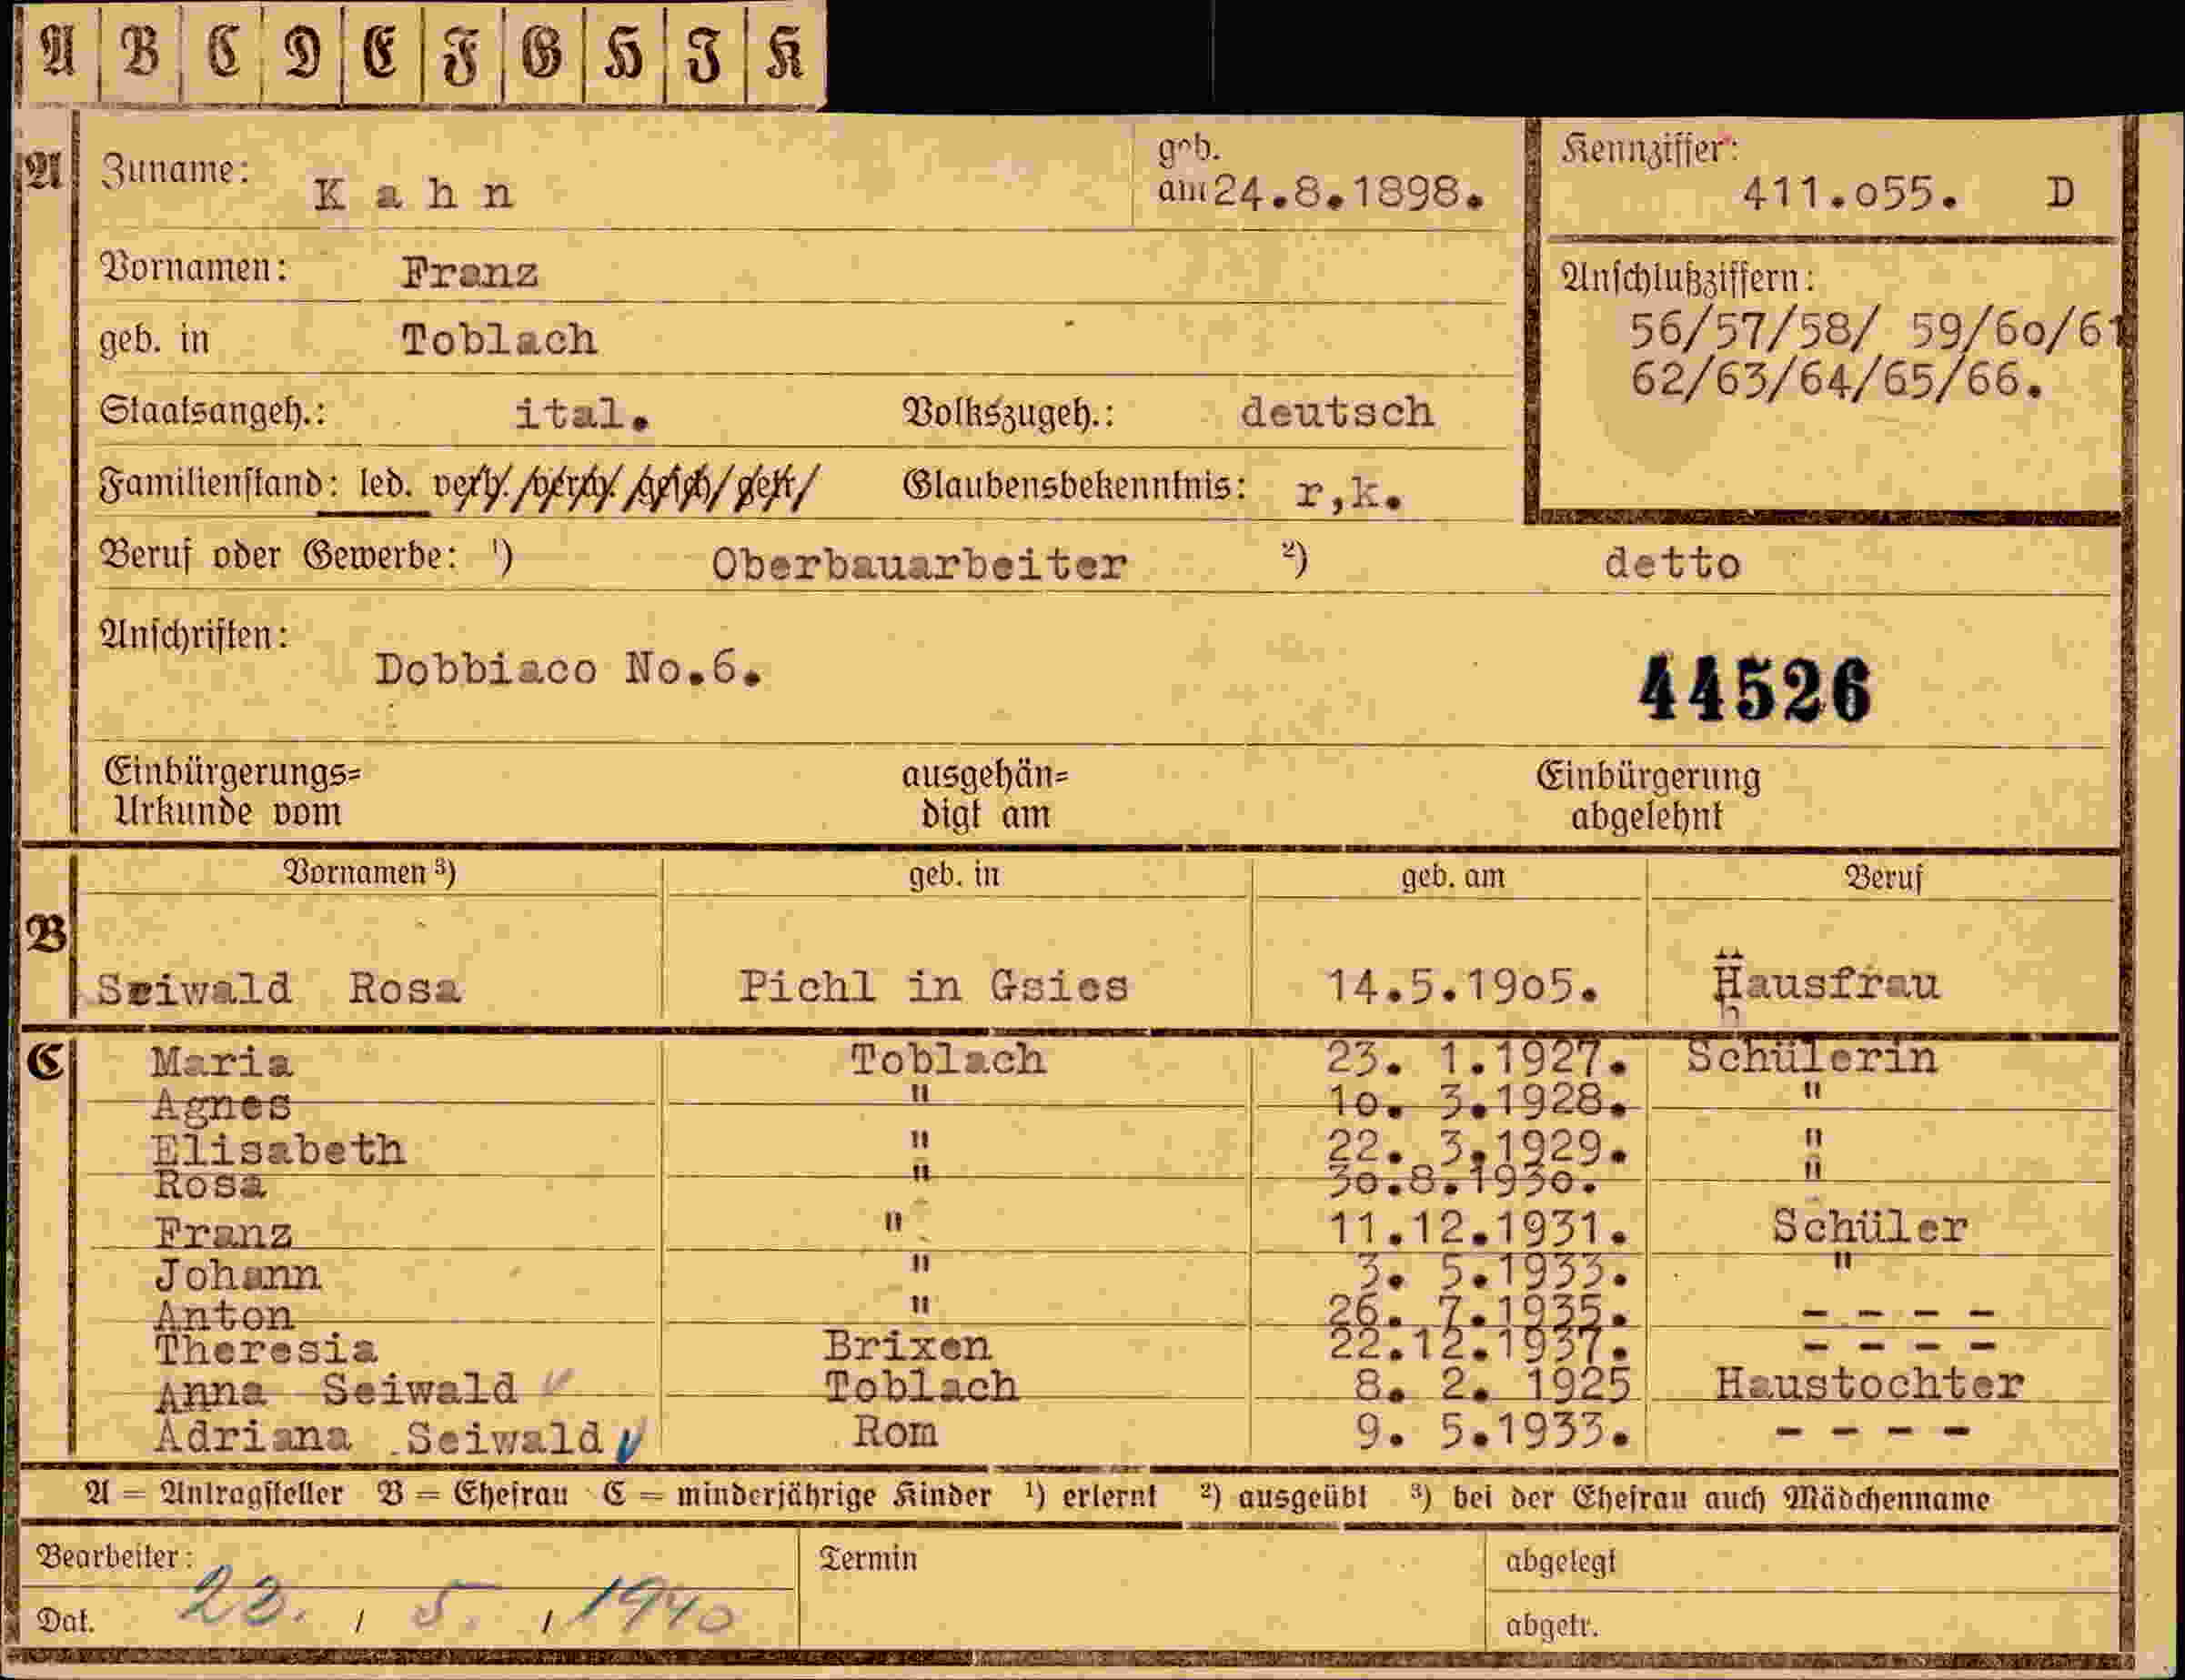 A B C D E F G H I K
A Zuname: Kahn geb. am 24.8.1898. Kennziffer: 411.o55. D
Vornamen: Franz
Anschlußziffern:
geb. in Toblach 56/57/58/ 59/6o/61
62/63/64/65/66.
Staatsangeh.: ital. Volkszugeh.: deutsch
Familienstand: led. verh. verw. gesch. getr. Glaubensbekenntnis: r,k.
Beruf oder Gewerbe: ¹) Oberbauarbeiter ²) detto
Anschriften:
Dobbiaco No.6. 44526
Einbürgerungs= ausgehän= Einbürgerung
Urkunde vom digt am abgelehnt
Vornamen ³) geb. in geb. am Beruf
B
Seiwald Rosa Pichl in Gsies 14.5.19o5. Hausfrau
C Maria Toblach 23. 1.1927. Schülerin
Agnes " 1o. 3.1928. "
Elisabeth " 22. 3.1929. "
Rosa " 3o.8.193o. "
Franz " 11.12.1931. Schüler
Johann " 3. 5.1933. "
Anton " 26. 7.1935. - - - -
Theresia Brixen 22.12.1937. - - - -
Anna Seiwald Toblach 8. 2. 1925 Haustochter
Adriana Seiwald Rom 9. 5.1933. - - - -
A = Antragsteller B = Ehefrau C = minderjährige Kinder ¹) erlernt ²) ausgeübt ³) bei der Ehefrau auch Mädchenname
Bearbeiter: Termin abgelegt
Dat. 23. / 5. / 1940 abgetr.